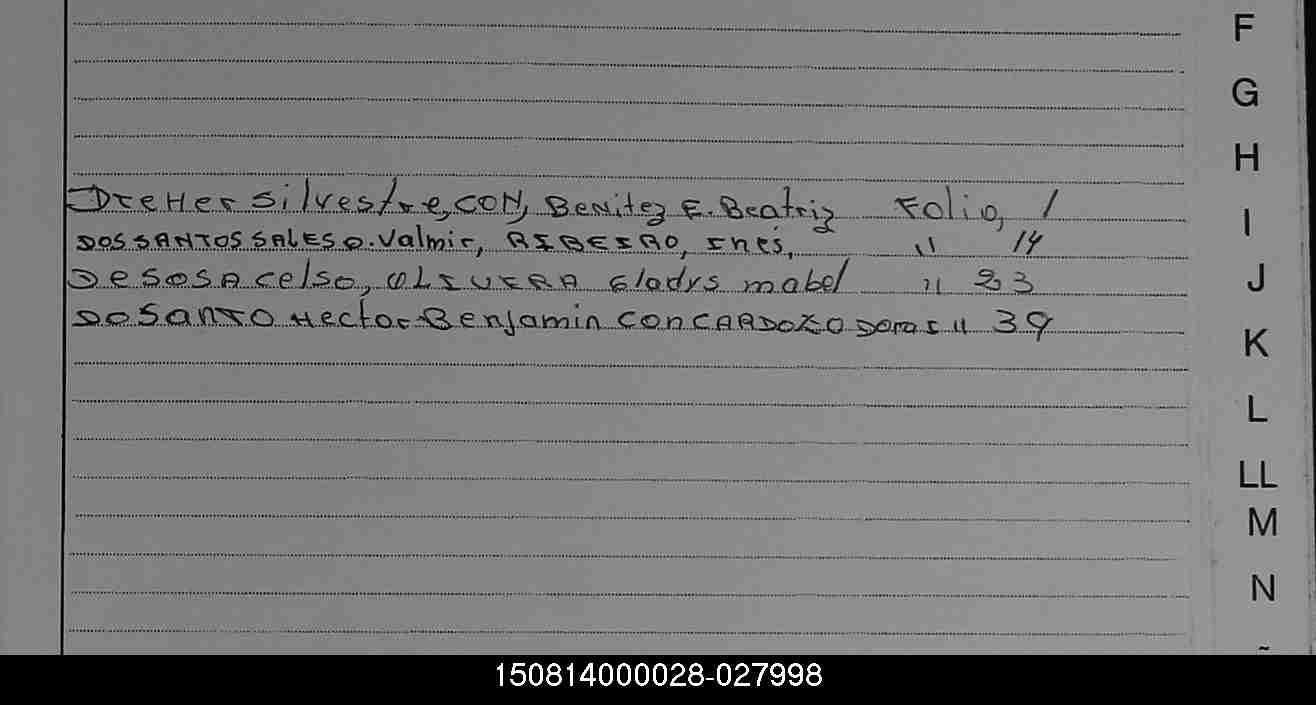 F
G
H
Dreher Silvestre, CON, Benitez E. Beatriz Folio, 1
I
DOS SANTOS SALES O. Valmir, RIBEIRO, Ines, " 14
DESOSA Celso, OLIVERA Gladys mabel " 23
J
DO SANTO Hector Benjamin CON CARDOZO " 39
K
L
LL
M
N
150814000028-027998